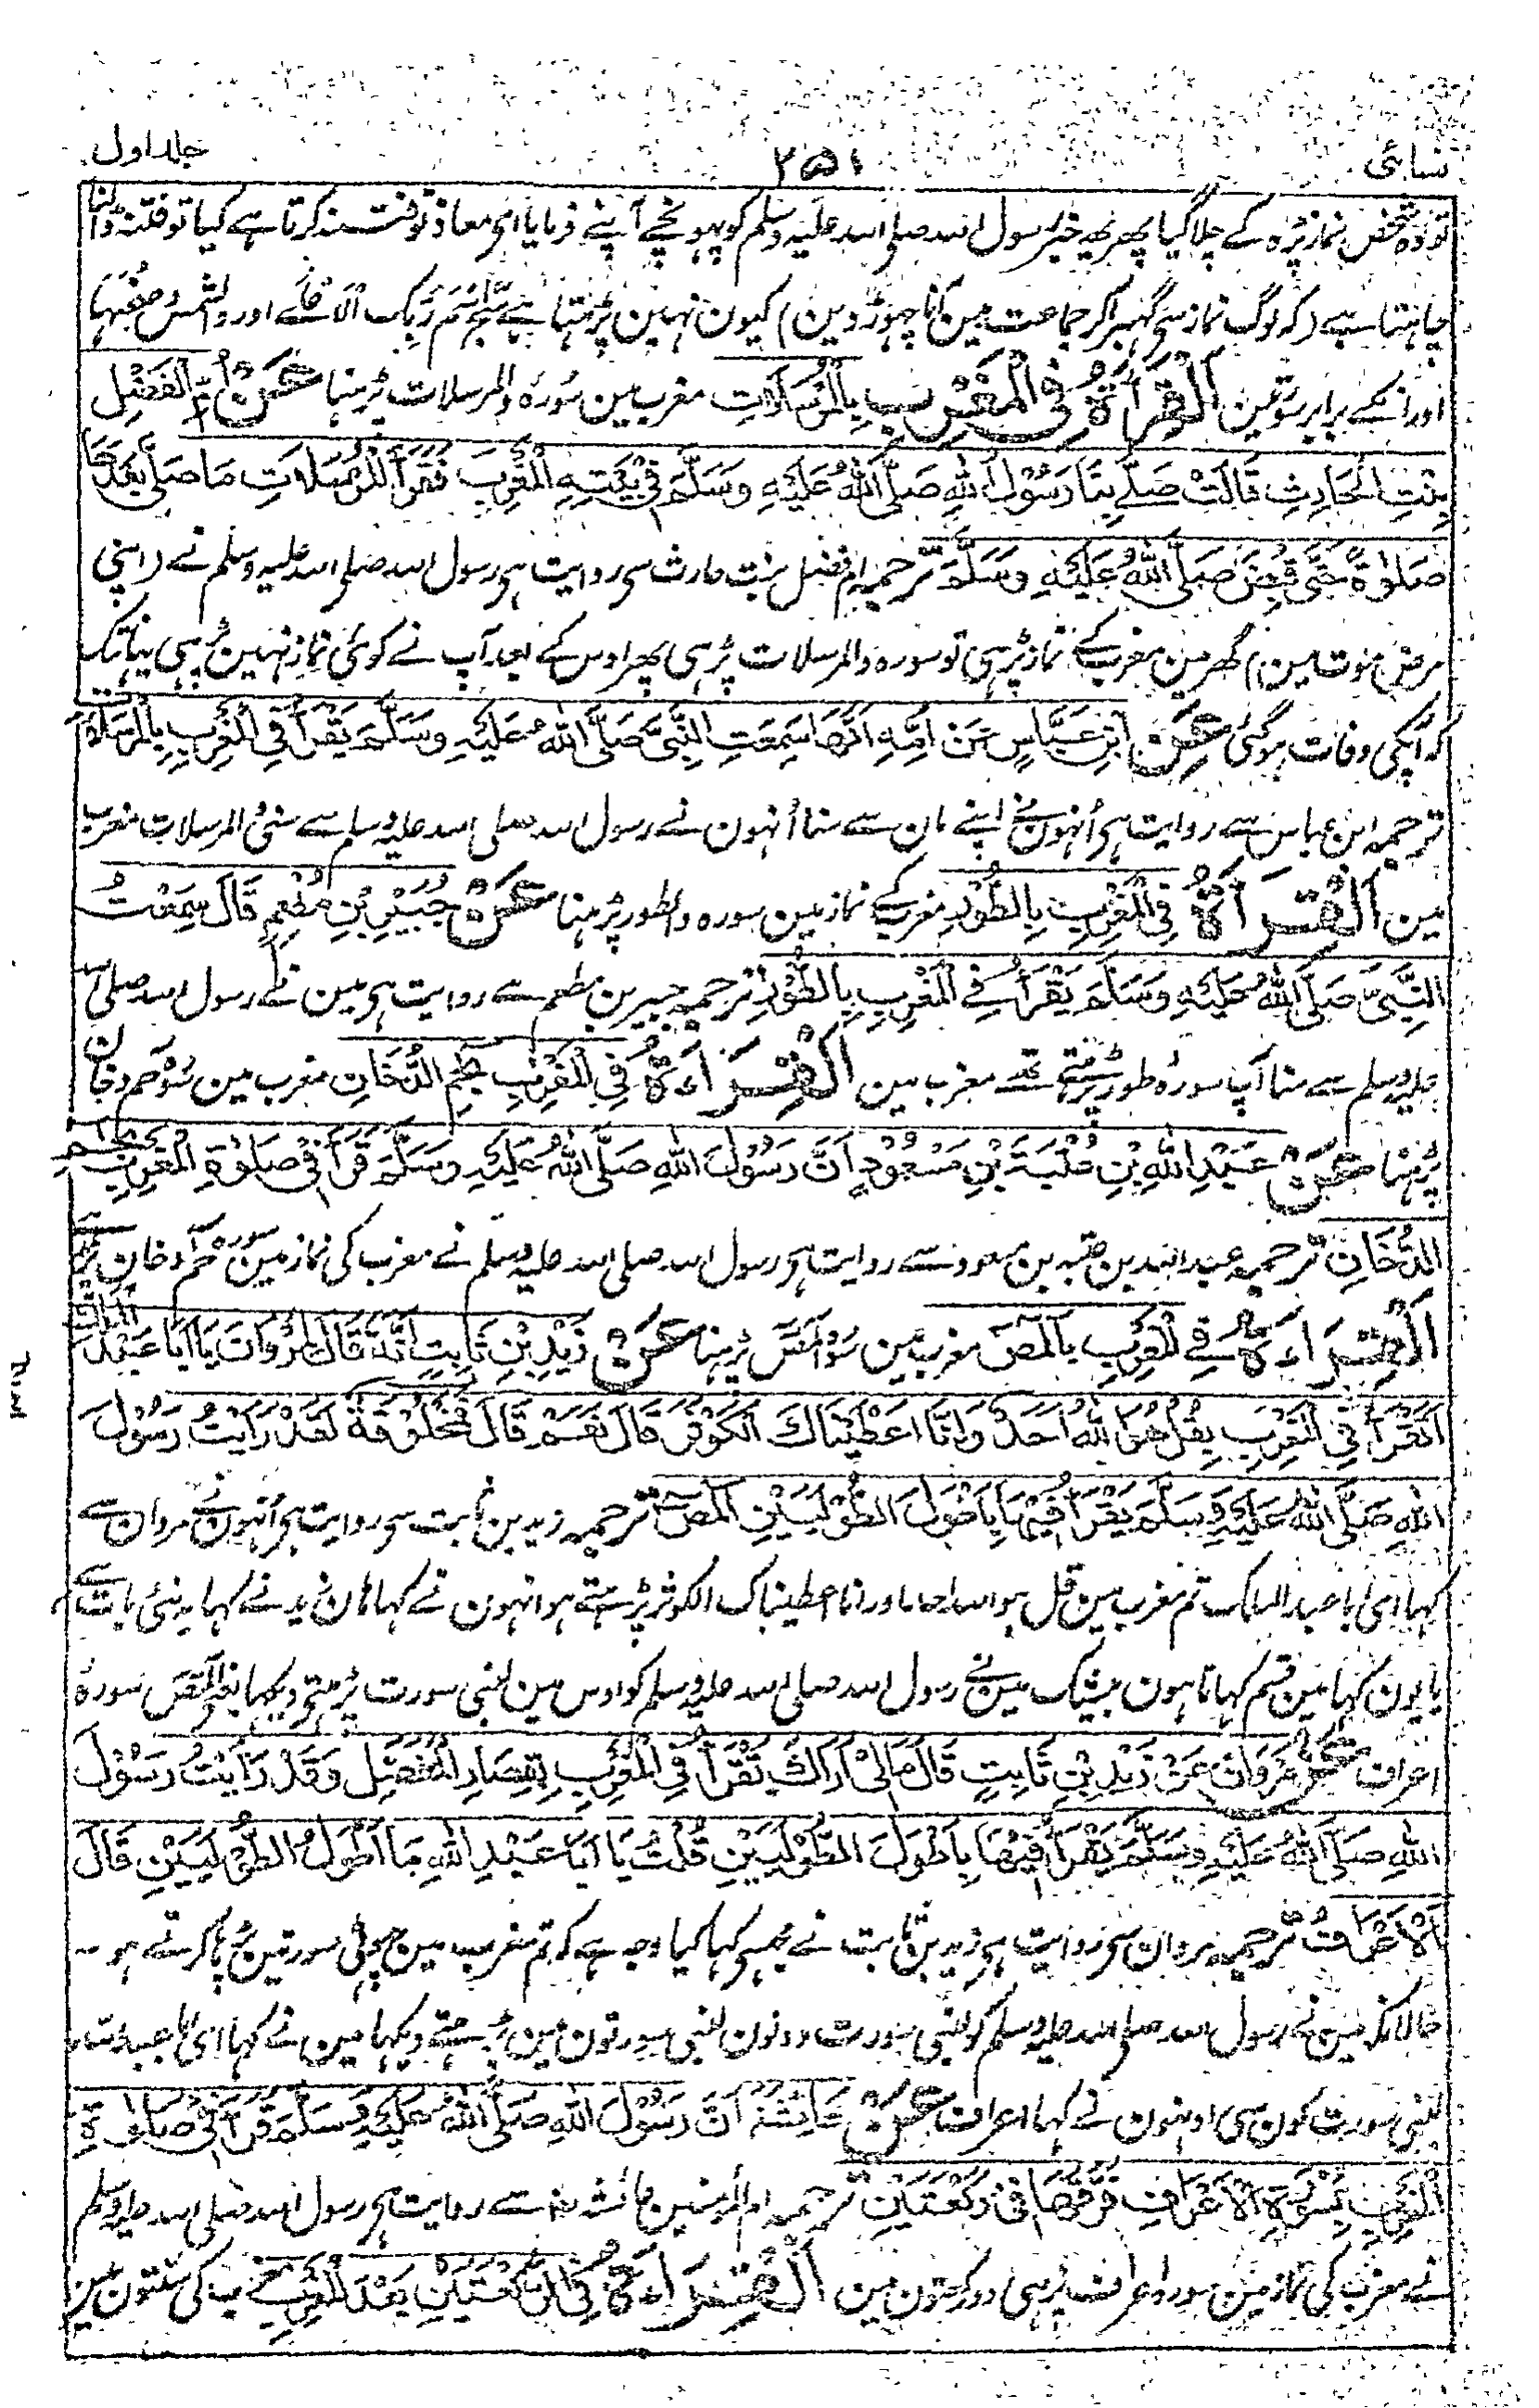 نسائی ۲۵۱ جلد اول
تو وہ شخص نماز پڑہ کے چلا گیا پھر یہ خبر رسول اللہ صلی اللہ علیہ وسلم کو پہونچے آپنے فرمایا ای معاذ تو فتنہ کرتا ہے کیا تو فتنہ ڈالنا
چاہتا ہے (کہ لوگ نماز سی گہبرا کر جماعت مین آنا چہوڑ دین) کیون نہین پڑہتا ہے سَبِّحِ اسْمَ رَبِّکَ الْاَعْلٰے اور والشمس وضحٰہا
اور انکے برابر سورتین اَلْقِرَاءَةُ فِی الْمَغْرِبِ بِالْمُرْسَلَاتِ مغرب مین سورۂ والمرسلات پڑہنا عَنْ اُمِّ الْفَضْلِ
بِنْتِ الْحَارِثِ قَالَتْ صَلّٰے بِنَا رَسُوْلُ اللّٰهِ صَلَّی اللّٰهُ عَلَیْهِ وَسَلَّمَ فِیْ بَیْتِهِ الْمَغْرِبَ فَقَرَأَ الْمُرْسَلَاتِ مَا صَلّٰی بَعْدَهَا
صَلٰوةً حَتّٰی قُبِضَ صَلَّی اللّٰهُ عَلَیْهِ وَسَلَّمَ ترجمہ ام فضل بنت حارث سی روایت ہی رسول اللہ صلی اللہ علیہ وسلم نے (اپنی
مرض موت مین) گھر مین مغرب کے نماز پڑہی تو سورہ والمرسلات پڑہی پھر اوس کے بعد آپ نے کوئی نماز نہین پڑہی یہانتک
کہ آپکی وفات ہوگئی عَنِ ابْنِ عَبَّاسٍ عَنْ اُمِّهِ اَنَّهَا سَمِعَتِ النَّبِیَّ صَلَّی اللّٰهُ عَلَیْهِ وَسَلَّمَ یَقْرَأُ فِی الْمَغْرِبِ بِالْمُرْسَلَاتِ
ترجمہ ابن عباس سے روایت ہی اُنہون نے اپنے مان سے سنا اُنہون نے رسول اللہ صلی اللہ علیہ وسلم سے سنی المرسلات مغرب
مین اَلْقِرَاءَةُ فِی الْمَغْرِبِ بِالطُّوْرِ مغرب کے نماز مین سورہ والطور پڑہنا عَنْ جُبَیْرِ بْنِ مُطْعِمٍ قَالَ سَمِعْتُ
النَّبِیَّ صَلَّی اللّٰهُ عَلَیْهِ وَسَلَّمَ یَقْرَأُ فِی الْمَغْرِبِ بِالطُّوْرِ ترجمہ جبیر بن مطعم سے روایت ہی مین نے رسول اللہ صلی اللہ
علیہ وسلم سے سنا آپ سورۂ طور پڑہتے تھے مغرب مین اَلْقِرَاءَةُ فِی الْمَغْرِبِ بِحٰمٓ الدُّخَانِ مغرب مین سورۂ حم دخان
پڑہنا عَنْ عَبْدِ اللّٰهِ بْنِ عُتْبَةَ بْنِ مَسْعُوْدٍ اَنَّ رَسُوْلَ اللّٰهِ صَلَّی اللّٰهُ عَلَیْهِ وَسَلَّمَ قَرَأَ فِیْ صَلٰوةِ الْمَغْرِبِ بِحٰمٓ
الدُّخَانِ ترجمہ عبد اللہ بن عتبہ بن مسعود سے روایت ہی رسول اللہ صلی اللہ علیہ وسلم نے مغرب کی نماز مین سورہ حٰمٓ دخان پڑہے
اَلْقِرَاءَةُ فِی الْمَغْرِبِ بِالٓمٓصٓ مغرب مین سورہ المص پڑہنا عَنْ زَیْدِ بْنِ ثَابِتٍ اَنَّهُ قَالَ لِمَرْوَانَ یَا اَبَا عَبْدِ الْمَلِكِ
اَتَقْرَأُ فِی الْمَغْرِبِ بِقُلْ هُوَ اللّٰهُ اَحَدٌ وَاِنَّا اَعْطَیْنَاكَ الْكَوْثَرَ قَالَ نَعَمْ قَالَ فَمَحْلُوْفَةٌ لَقَدْ رَاَیْتُ رَسُوْلَ
اللّٰهِ صَلَّی اللّٰهُ عَلَیْهِ وَسَلَّمَ یَقْرَأُ فِیْهَا بِاَطْوَلِ الطُّوْلَیَیْنِ الٓمٓصٓ ترجمہ زید بن ثابت سی روایت ہی اُنہون نے مروان سے
کہا ای ابا عبد الملک تم مغرب مین قل ہو اللہ احد اور انا اعطیناک الکوثر پڑہتے ہو انہون نے کہا ہان زید نے کہا یہ نئی بات ہے
یا یون کہا مین قسم کہاتا ہون بیشک مین نے رسول اللہ صلی اللہ علیہ وسلم کو اوس مین لنبی سورت پڑہتے دیکہا یعنے المص سورۂ
اعراف عَنْ مَرْوَانَ عَنْ زَیْدِ بْنِ ثَابِتٍ قَالَ مَالِیْ اَرَاكَ تَقْرَأُ فِی الْمَغْرِبِ بِقِصَارِ الْمُفَصَّلِ وَقَدْ رَاَیْتُ رَسُوْلَ
اللّٰهِ صَلَّی اللّٰهُ عَلَیْهِ وَسَلَّمَ یَقْرَأُ فِیْهَا بِاَطْوَلِ الطُّوْلَیَیْنِ قُلْتُ یَا اَبَا عَبْدِ اللّٰهِ مَا اَطْوَلُ الطُّوْلَیَیْنِ قَالَ
اَلْاَعْرَافُ ترجمہ مروان سی روایت ہی زید بن ثابت نے مجہسی کہا کیا وجہ ہے کہ تم مغرب مین چہوٹی سورتین پڑہا کرتے ہو ۔۔
حالانکہ مین نے رسول اللہ صلی اللہ علیہ وسلم کو لنبی سورت دونون لنبی سورتون مین پڑہتے دیکہا مین نے کہا ای ابا عبد اللہ
لنبی سورت کون سی اونہون نے کہا اعراف عَنْ عَائِشَةَ اَنَّ رَسُوْلَ اللّٰهِ صَلَّی اللّٰهُ عَلَیْهِ وَسَلَّمَ قَرَأَ فِیْ صَلٰوةِ
الْمَغْرِبِ بِسُوْرَةِ الْاَعْرَافِ فَرَّقَهَا فِیْ رَكْعَتَیْنِ ترجمہ ام المؤمنین عائشہ سے روایت ہی رسول اللہ صلی اللہ علیہ وسلم
نے مغرب کی نماز مین سورہ اعراف پڑہی دو رکعتون مین اَلْقِرَاءَةُ فِی الرَّكْعَتَیْنِ بَعْدَ الْمَغْرِبِ مغرب کی سنتون مین